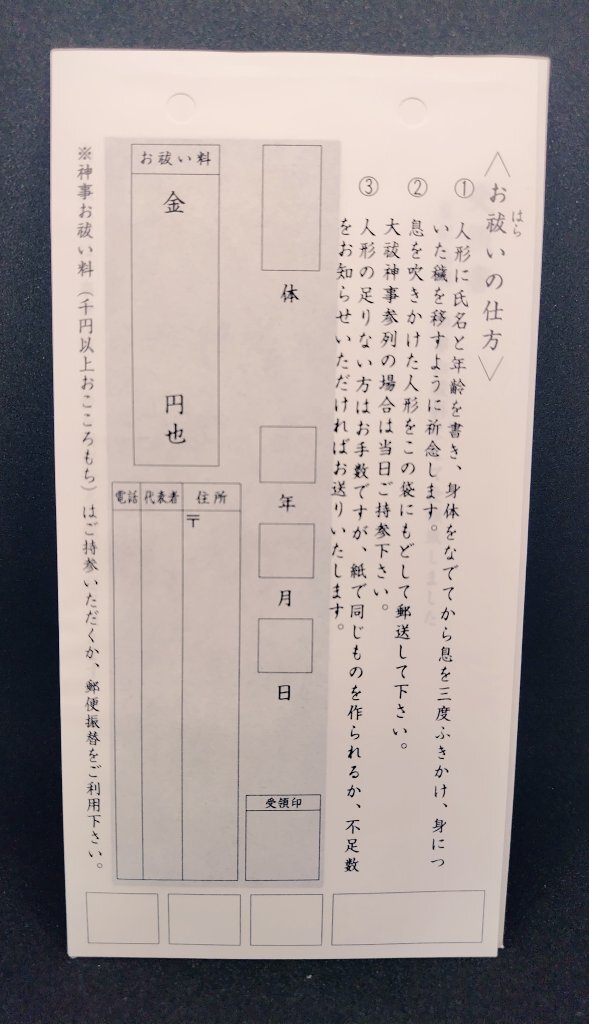 〈お祓いの仕方〉
はら
① 人形に氏名と年齢を書き、身体をなでてから息を三度ふきかけ、身につ
いた穢を移すように祈念します。
② 息を吹きかけた人形をこの袋にもどして郵送して下さい。
大祓神事参列の場合は当日ご持参下さい。
③ 人形の足りない方はお手数ですが、紙で同じものを作られるか、不足数
をお知らせいただければお送りいたします。
体
年
月
日
受領印
お祓い料
金
円也
住所
〒
代表者
電話
※神事お祓い料（千円以上おこころもち）はご持参いただくか、郵便振替をご利用下さい。